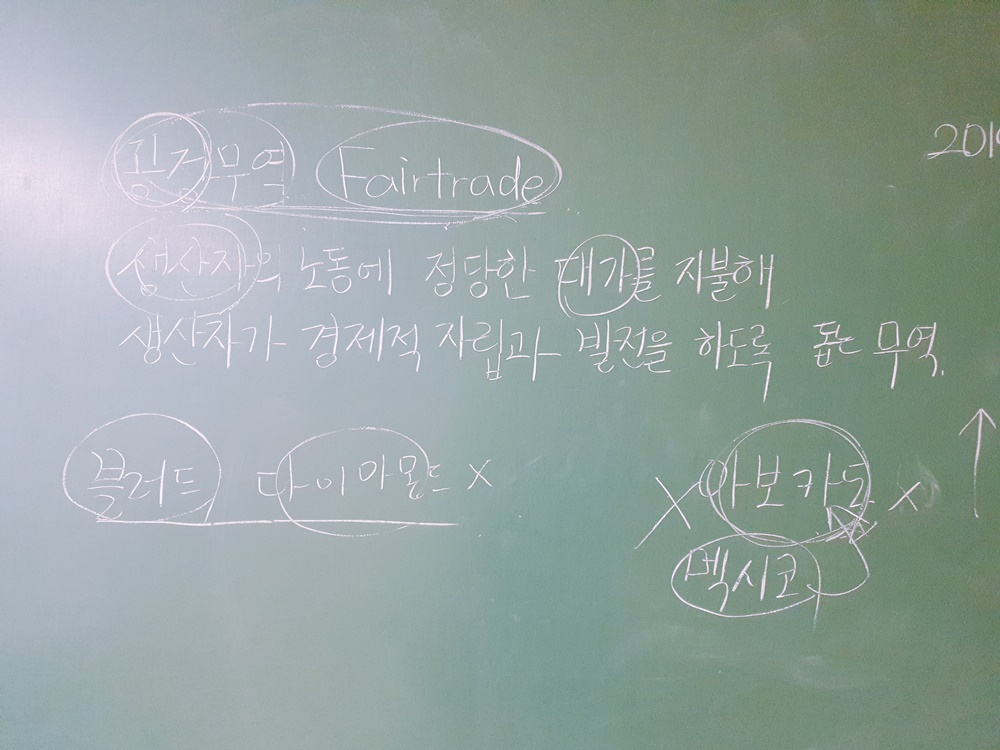 공정무역 Fairtrade
생산자의 노동에 정당한 대가를 지불해
생산자가 경제적 자립과 발전을 하도록 돕는 무역.
블러드 다이아몬드 X
X 아보카도 X
멕시코